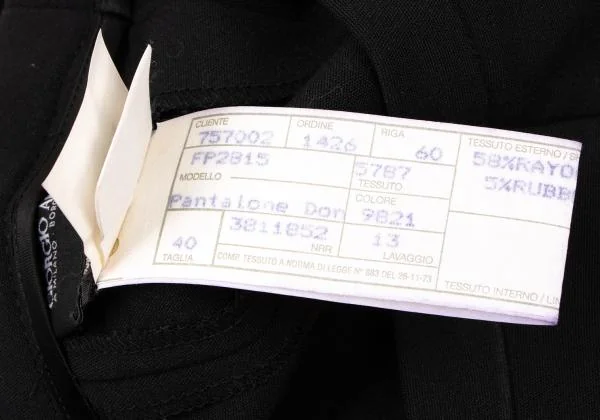 CLIENTE ORDINE RIGA TESSUTO ESTERNO /
757002 1426 60 58%RAYO
FP2815 5787 5%RUBB
MODELLO TESSUTO
Pantalone Don COLORE
9821
3811852 13
40 NRR LAVAGGIO
TAGLIA COMP. TESSUTO A NORMA DI LEGGE N° 883 DEL 26-11-73
TESSUTO INTERNO /
GIORGIO A
A MILANO